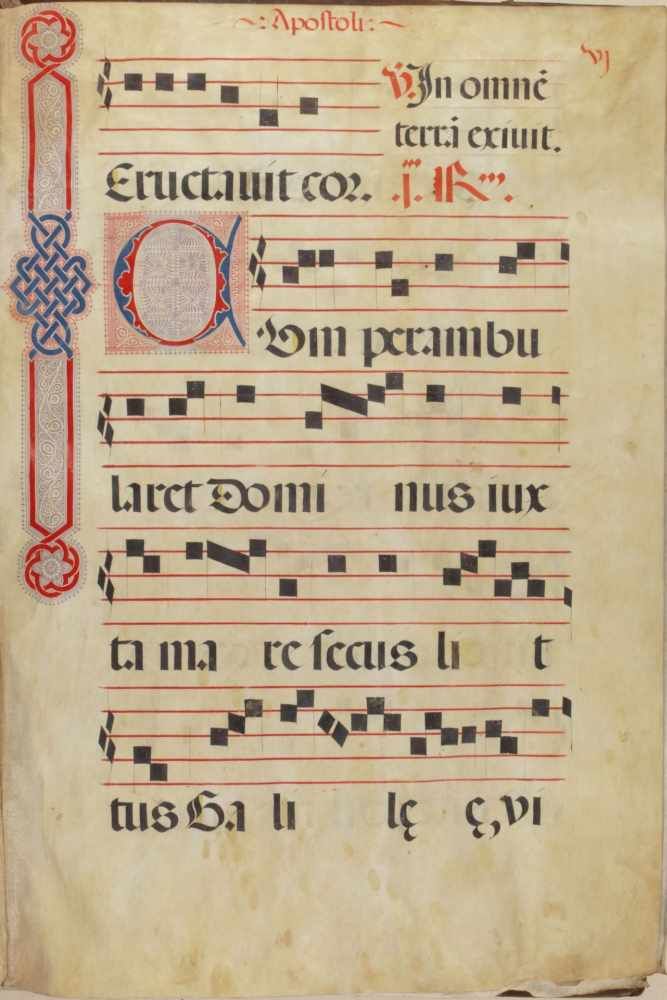 ~:Apostoli:~
vj
V. In omnē
terrā exivit.
Eructavit cor. .j. R.
CVm perambu
laret Domi nus iux
ta ma re secus li t
tus Ga li lę ę, vi